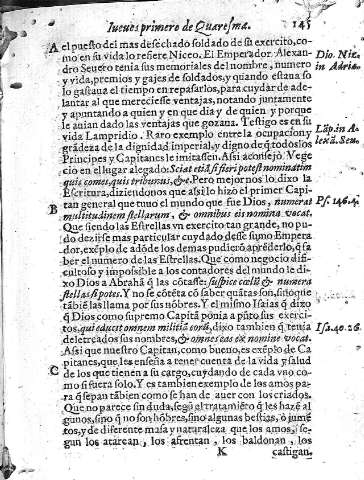 Iueues primero de Quaresma. 145
A el puesto del mas desechado soldado de su exercito, co-
mo en su vida lo refiere Niceo. El Emperador Alexan-
dro Seuero tenia sus memorias del nombre, numero
y vida, premios y gajes de soldados, y quando estaua solo
lo gastaua el tiempo en repasarlos, para cuydar de ade-
lantar al que mereciesse ventajas, notando juntamente
y apuntando a quien y en que dia y de quien y porque
le auian dado las ventajas que gozaua. Testigo es en su
vida Lampridio. Raro exemplo entre la ocupacion y
grādeza de la dignidad imperial, y digno de q̄ todos los
Principes y Capitanes le imitassen. Assi aconsejò Vege
cio en el lugar alegado: Sciat etiā si fieri potest nominatim
quis comes, quis tribunus, &c. Pero mejor nos lo dixo la
Escritura, diziendonos que assi lo hizo el primer Capi
tan general que tuuo el mundo que fue Dios, numerat
B multitudinem stellarum, & omnibus eis nomina vocat.
Que siendo las Estrellas vn exercito tan grande, no pu-
do dezirse mas particular cuydado desse sumo Empera
dor, exēplo de adōde los demas pudierō aprēderlo, q̄ sa
ber el numero de las Estrellas. Que como negocio difi-
cultoso y impossible a los contadores del mundo le di-
xo Dios a Abrahā q̄ las cōtasse: suspice cœlū & numera
stellas si potes. Y no se cōtēta cō saber quātas son, sino que
tābiē las llama por sus nōbres. Y el mismo Isaias q̄ dixo
q̄ Dios como supremo Capitā ponia a pūto sus exerci-
tos, qui educit omnem militiā eorū, dixo tambien q̄ tenia
deletreados sus nombres, & omnes eas ex nomine vocat.
Assi que nuestro Capitan, como bueno, es exēplo de Ca
pitanes, que les enseña a tener cuenta de la vida y salud
C de los que tienen a su cargo, cuydando de cada vno co-
mo si fuera solo. Y es tambien exemplo de los amos pa-
ra q̄ sepan tābien como se han de auer con los criados.
Que no parece sin duda, segū el tratamiēto q̄ les hazē al
gunos, sino q̄ no son hōbres, sino algunas bestias, ò jumē
tos, y de diferente masa y naturaleza que los amos, se-
gun los atarean, los afrentan, los baldonan, los
K castigan.
Dio. Nic.
in Adria.
Lāp. in A-
lexā. Seu.
Ps. 146.4.
Isa. 40.26.